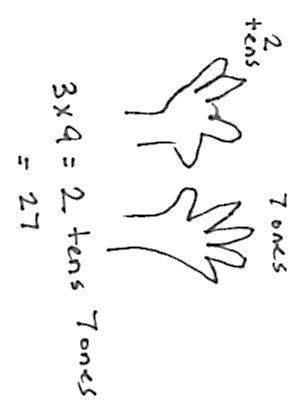 2
tens
7 ones
3x9 = 2 tens 7 ones
= 27